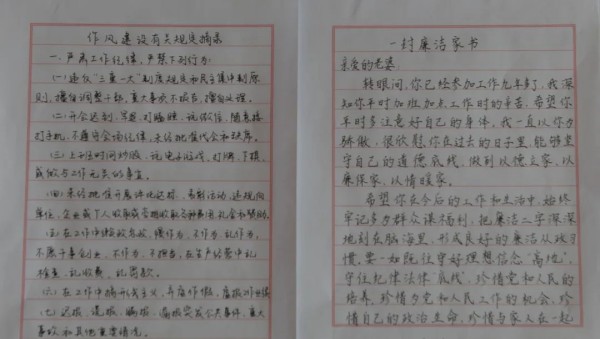 作风建设有关规定摘录
一、严肃工作纪律，严禁下列行为:
(一)违反“三重一大”制度规定和民主集中制原
则，擅自调整干部，重大事项不报告，擅自处理。
(二)开会迟到、早退、打瞌睡、玩微信、随意接
打手机，不遵守会场纪律，未经批准代会和缺席。
(三)上班时间炒股、玩电子游戏、打牌、下棋、
或做与工作无关的事宜。
(四)未经批准开展评比达标、表彰活动，违规向
单位、企业或个人收取或变相收取各种费用
(五)在工作中推诿扯皮、慢作为、不作为、乱作为，
不愿干事创业、不作为、不担当，在生产经营中乱
检查、乱收费、乱罚款。
(六)在工作中搞形式主义、弄虚作假，虚报
(七)迟报、谎报、瞒报、漏报突发公共事件、重大
事故和其他重要情况。
一封廉洁家书
亲爱的老婆:
转眼间，你已经参加工作九年多了，我深
知你平时加班加点工作时的辛苦，希望你
平时多注意好自己的身体。我一直以你为
骄傲，很欣慰你在过去的日子里，能够坚
守自己的道德底线，做到以德立家，以
廉保家，以情暖家。
希望你在今后的工作和生活中，始终
牢记多为群众谋福利，把廉洁二字深深
地刻在脑海里，形成良好的廉洁从政习
惯，要一如既往守好理想信念“高地”，
守住纪律法律“底线”，珍惜党和人民的
培养，珍惜为党和人民工作的机会，珍
惜自己的政治生命，珍惜与家人在一起